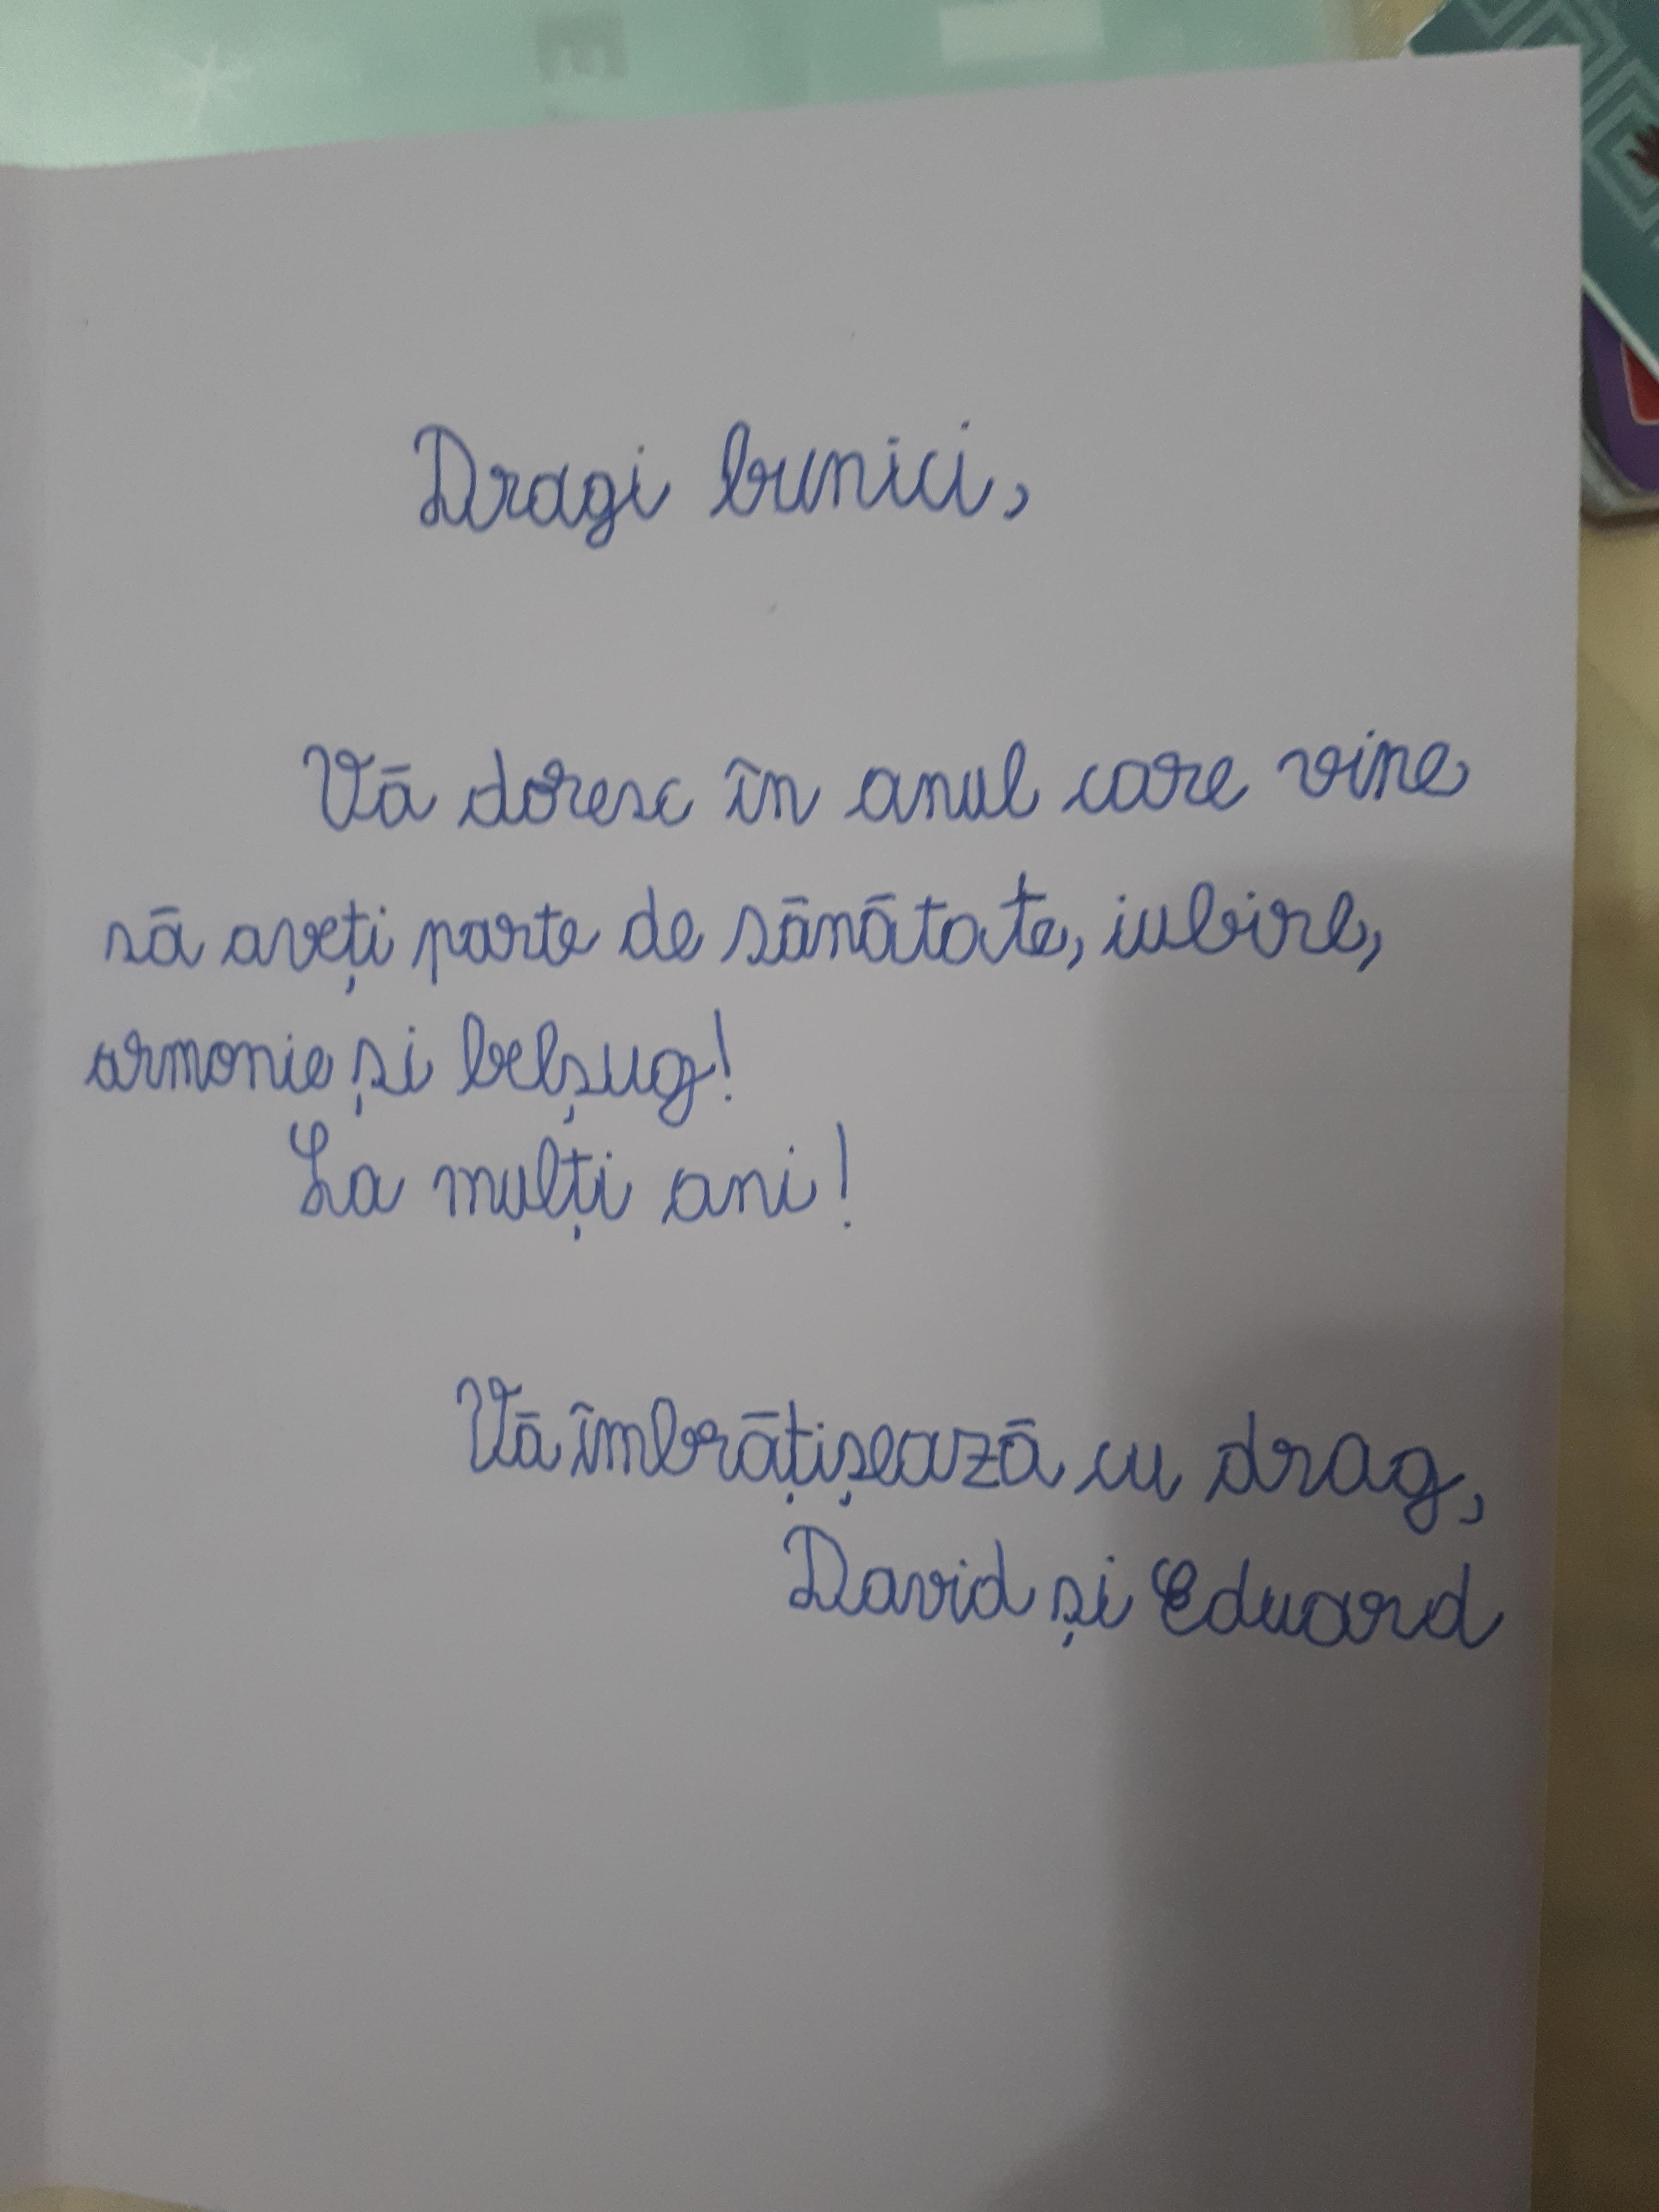 Dragi bunici,
Vă doresc în anul care vine
să aveți parte de sănătate, iubire,
armonie și belșug!
La mulți ani!
Vă îmbrățișează cu drag,
David și Eduard